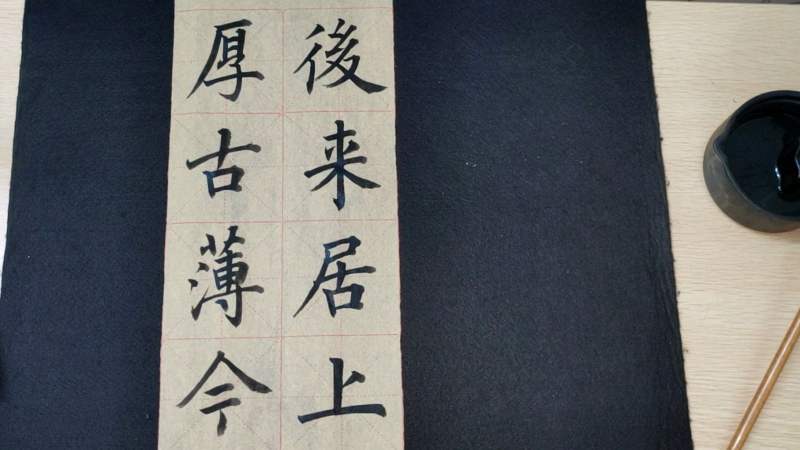 後来居上
厚古薄今